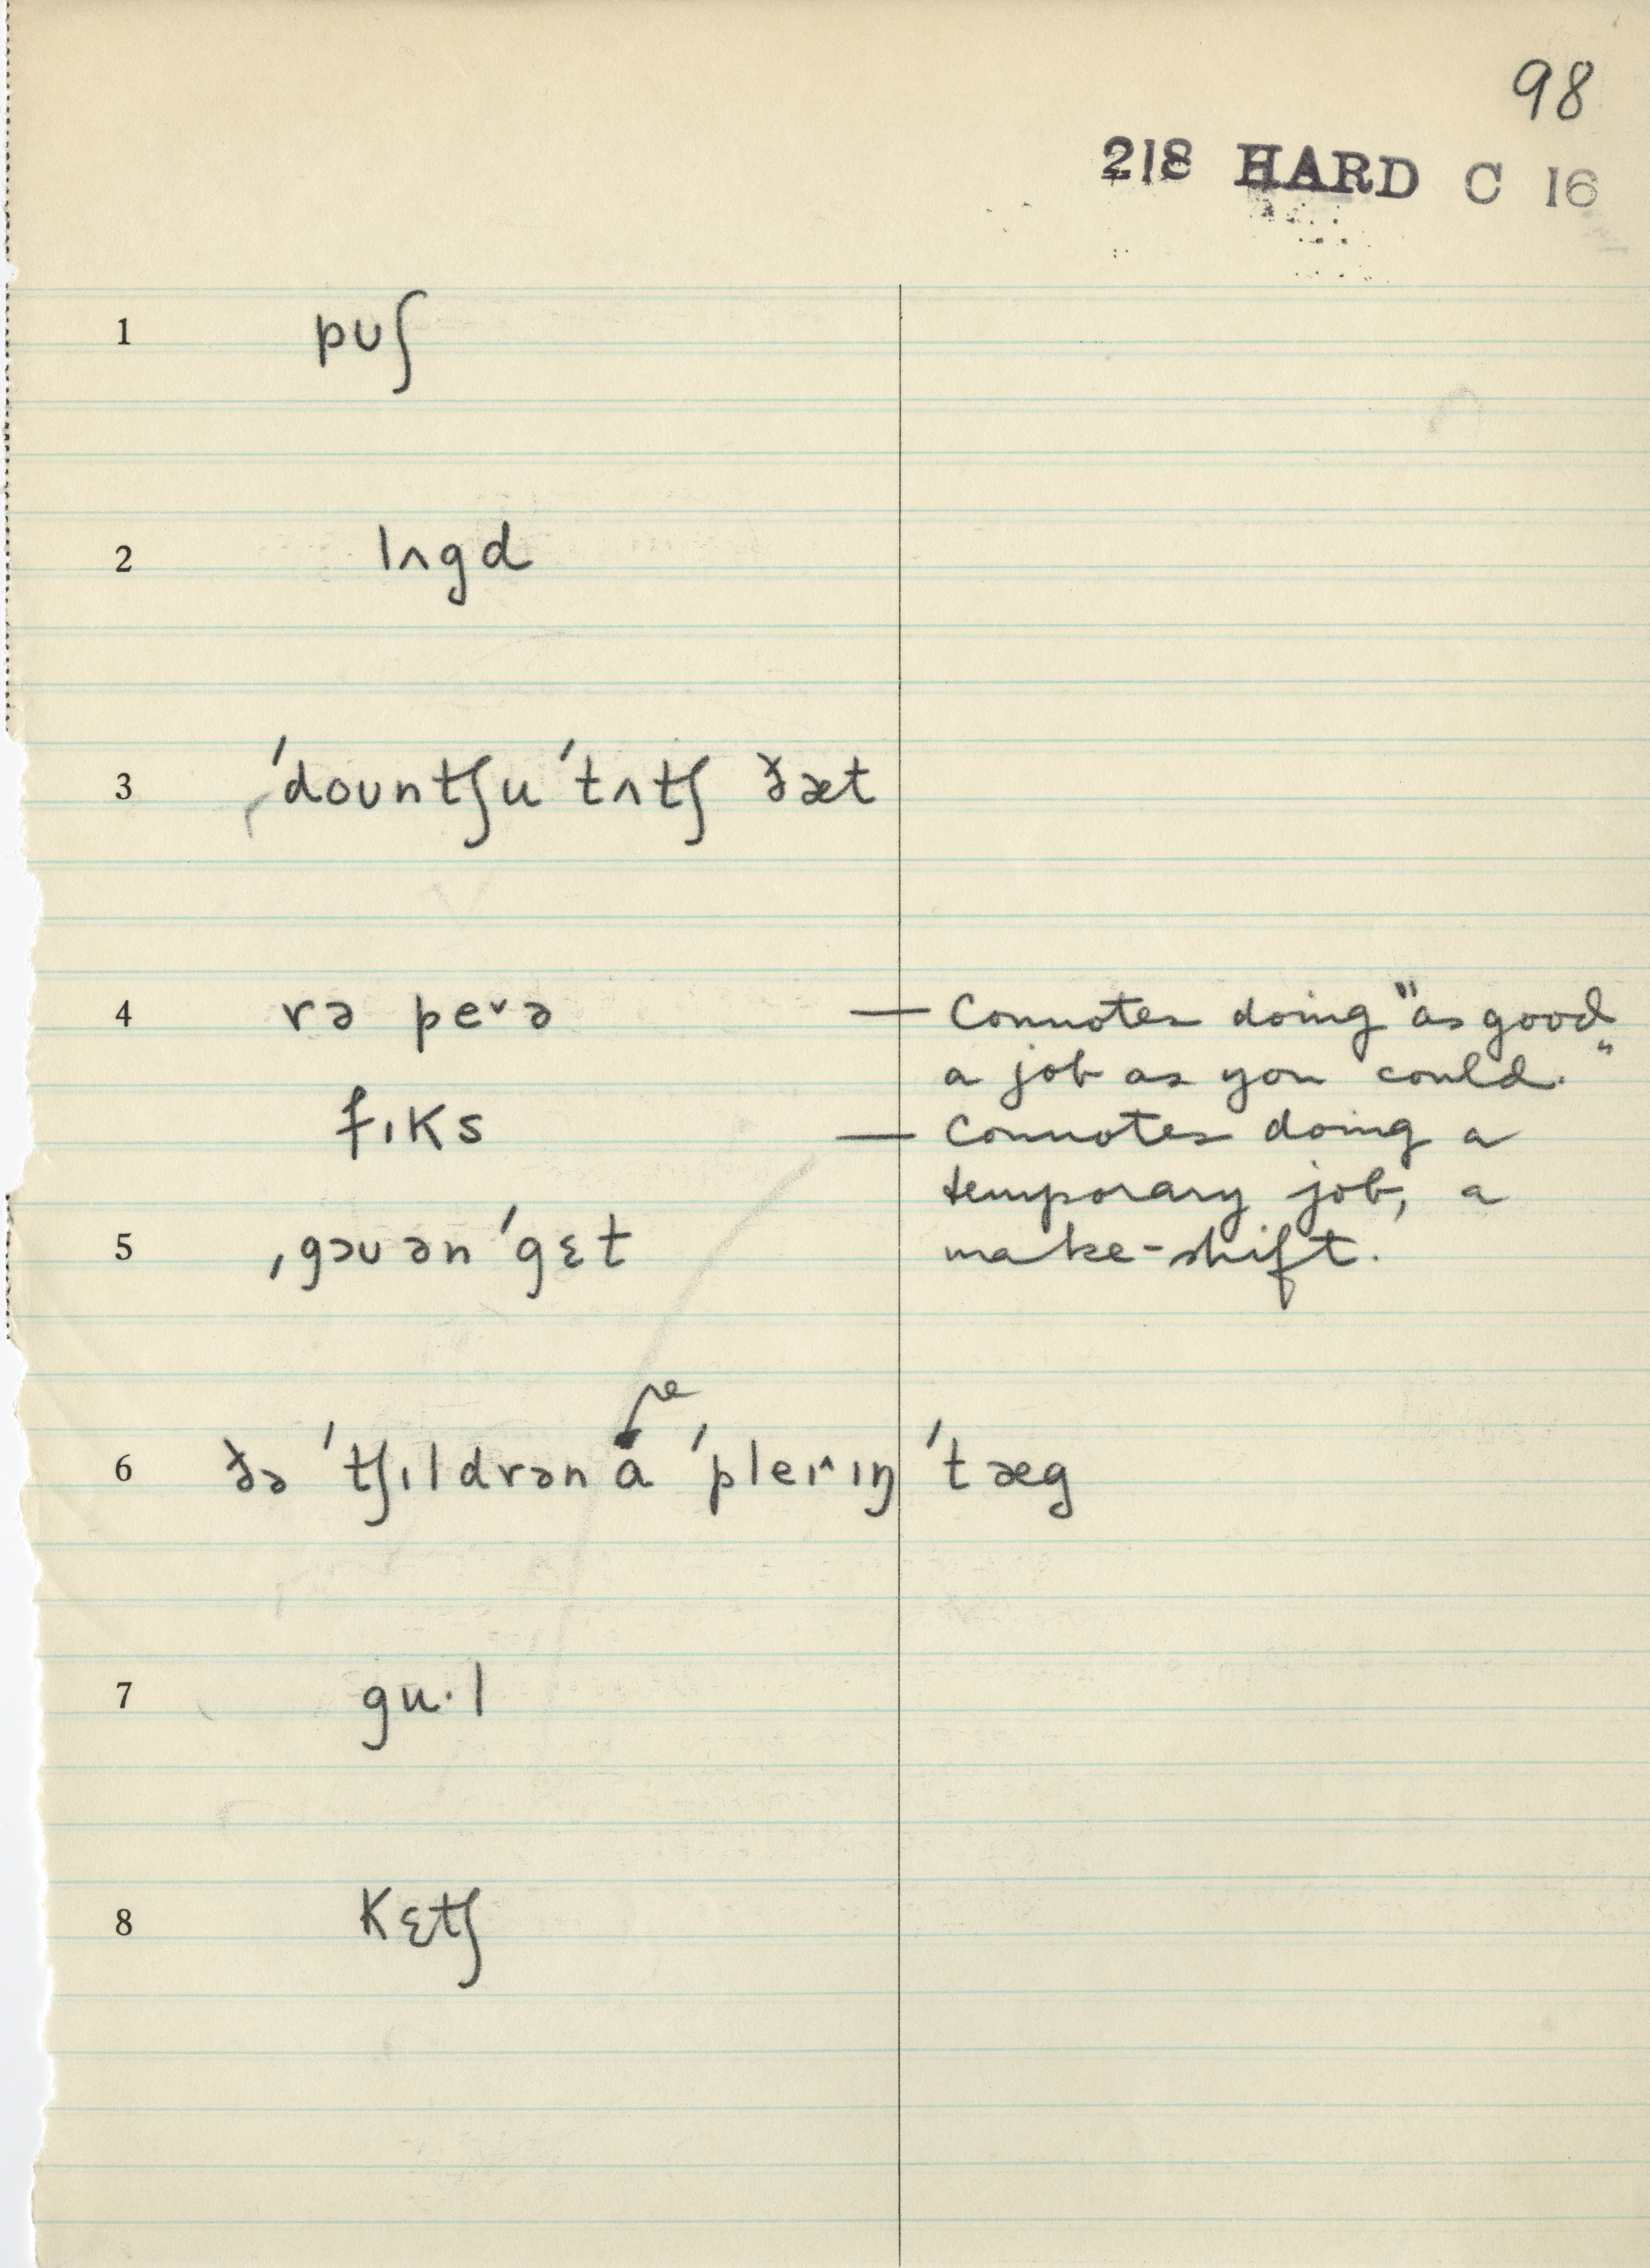 98
218 HARD C 16
1 pʊʃ
2 lʌgd
3 ˈdoʊntʃu ˈtʌtʃ ðæt
4 rə peᵛə — Connotes doing "as good
a job as you could."
fɪks — Connotes doing a
temporary job, a
5 ˌgəʊ ən ˈgɛt make-shift.
re
6 ðə ˈtʃɪldrən a ˈpleɪ^ɪŋ ˈtæg
7 gu·l
8 kɛtʃ